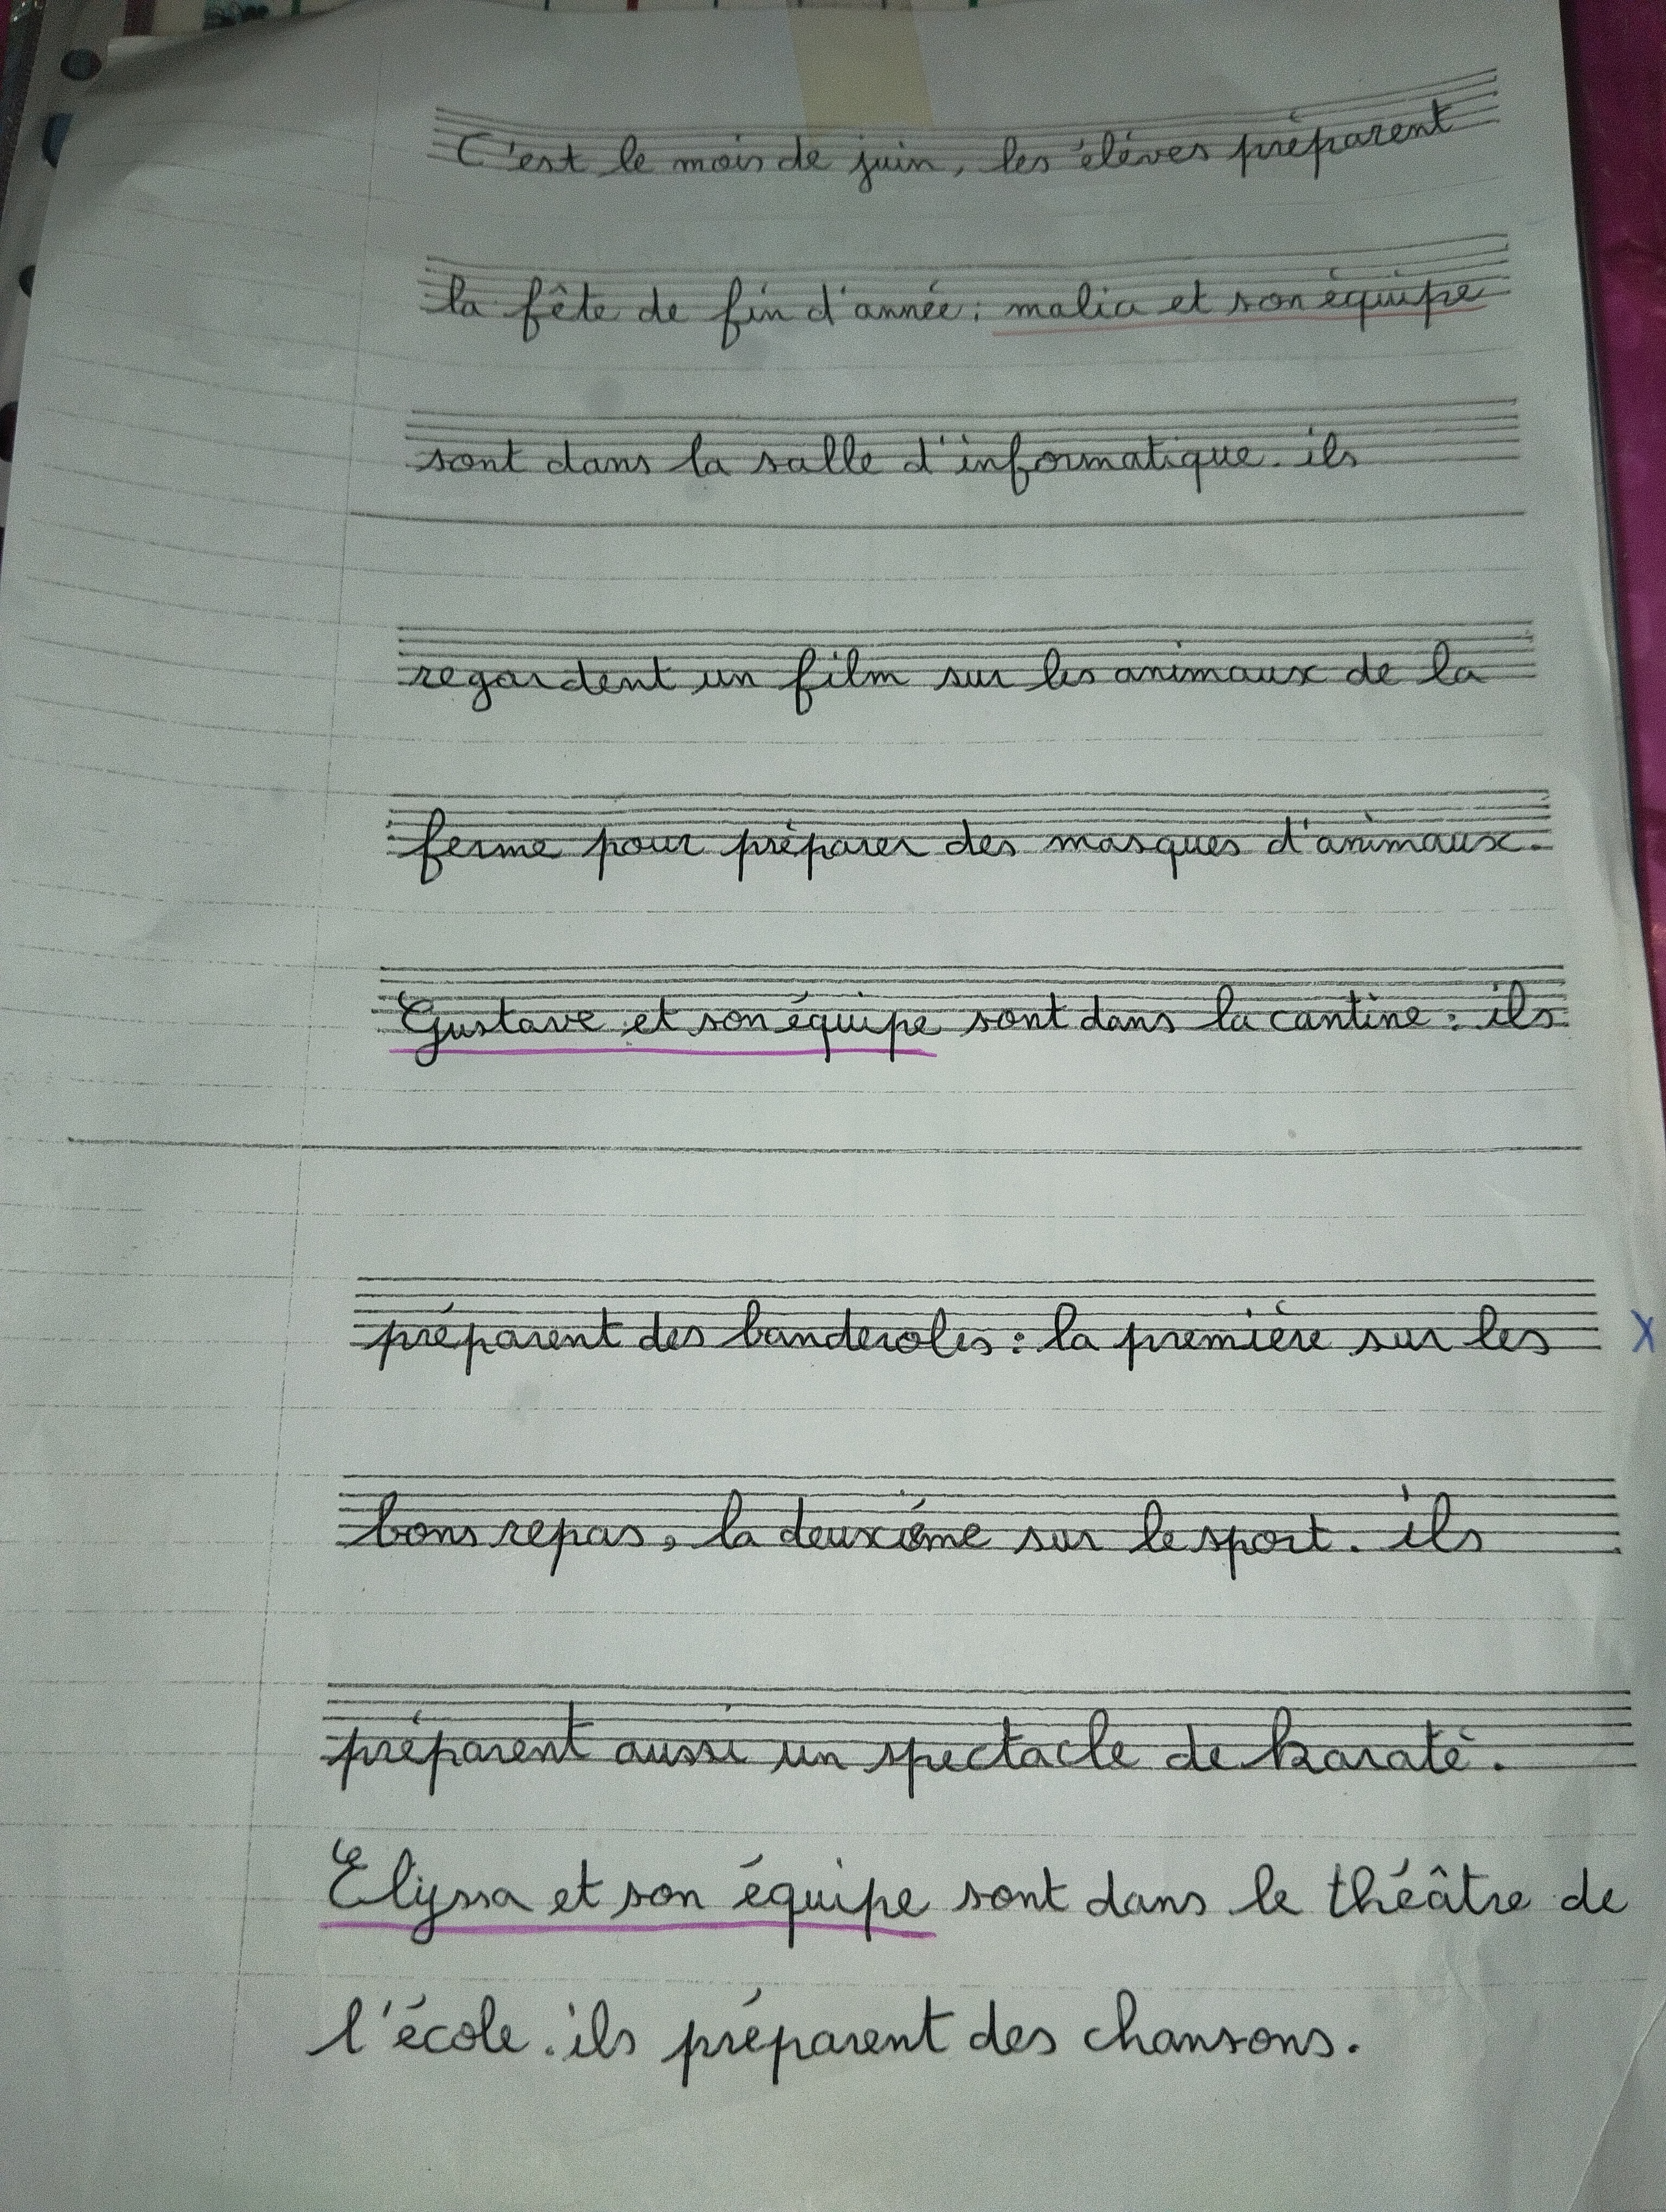 C'est le mois de juin, les élèves préparent
la fête de fin d'année : malia et son équipe
sont dans la salle d'informatique. ils
regardent un film sur les animaux de la
ferme pour préparer des masques d'animaux.
Gustave et son équipe sont dans la cantine : ils
préparent des banderoles : la première sur les X
bons repas, la deuxième sur le sport. ils
préparent aussi un spectacle de karaté.
Elyssa et son équipe sont dans le théâtre de
l'école. ils préparent des chansons.